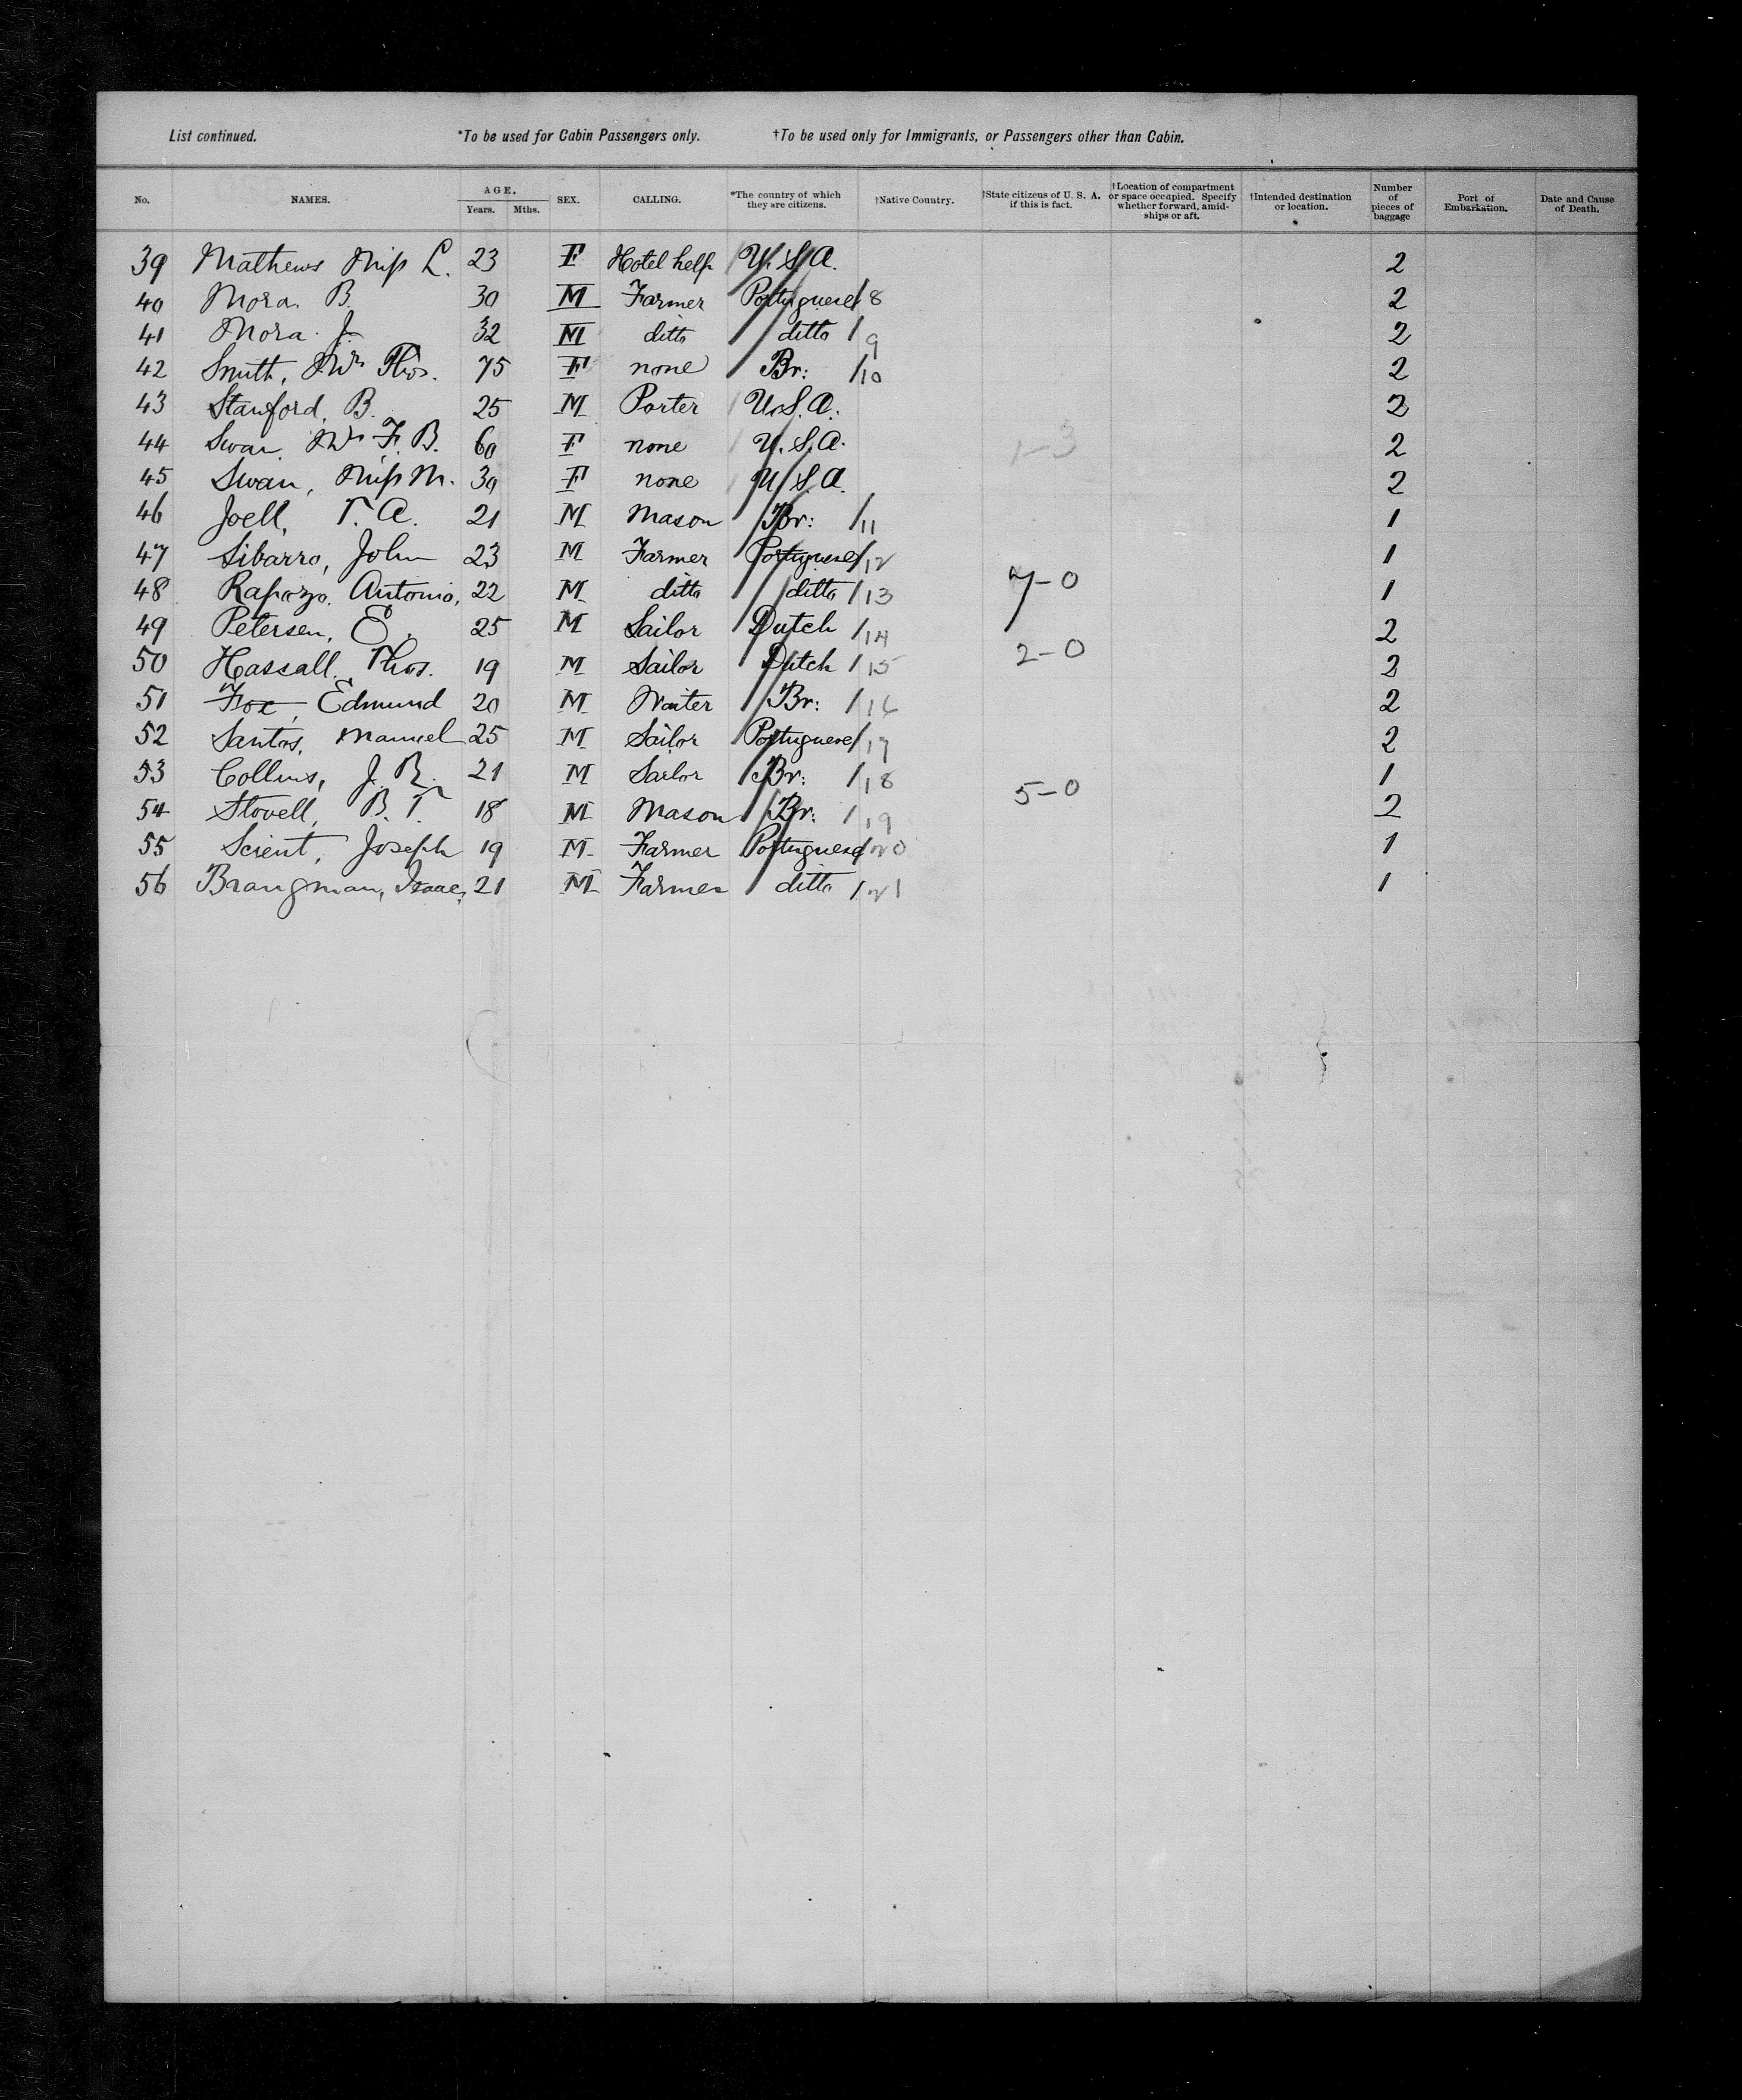 List continued. *To be used for Cabin Passengers only. †To be used only for Immigrants, or Passengers other than Cabin.
No. NAMES. AGE. Years. Mths. SEX. CALLING. *The country of which they are citizens. †Native Country. †State citizens of U. S. A. if this is fact. †Location of compartment or space occupied. Specify whether forward, amid-ships or aft. †Intended destination or location. Number of pieces of baggage Port of Embarkation. Date and Cause of Death.
39 Mathews Miss L. 23 F Hotel help U.S.A. 2
40 Mora. B. 30 M Farmer Portuguese 8 2
41 Mora. J. 32 M ditto ditto 9 2
42 Smith, Mrs Thos. 75 F none Br: 10 2
43 Stanford, B. 25 M Porter U.S.A. 2
44 Swan, Mrs F. B. 60 F none U.S.A. 1-3 2
45 Swan, Miss M. 30 F none U.S.A. 2
46 Joell, T. A. 21 M Mason Br: 11 1
47 Sibarro, John 23 M Farmer Portuguese 12 1
48 Rapozo. Antonio, 22 M ditto ditto 13 7-0 1
49 Petersen, E. 25 M Sailor Dutch 14 2
50 Hassall. Thos. 19 M Sailor Dutch 15 2-0 2
51 Fox, Edmund 20 M Waiter Br: 16 2
52 Santos, Manuel 25 M Sailor Portuguese 17 2
53 Collins, J. R. 21 M Sailor Br: 18 1
54 Stovell, B. T. 18 M Mason Br: 19 5-0 2
55 Scient, Joseph 19 M Farmer Portuguese 20 1
56 Brangman, Isaac, 21 M Farmer ditto 21 1